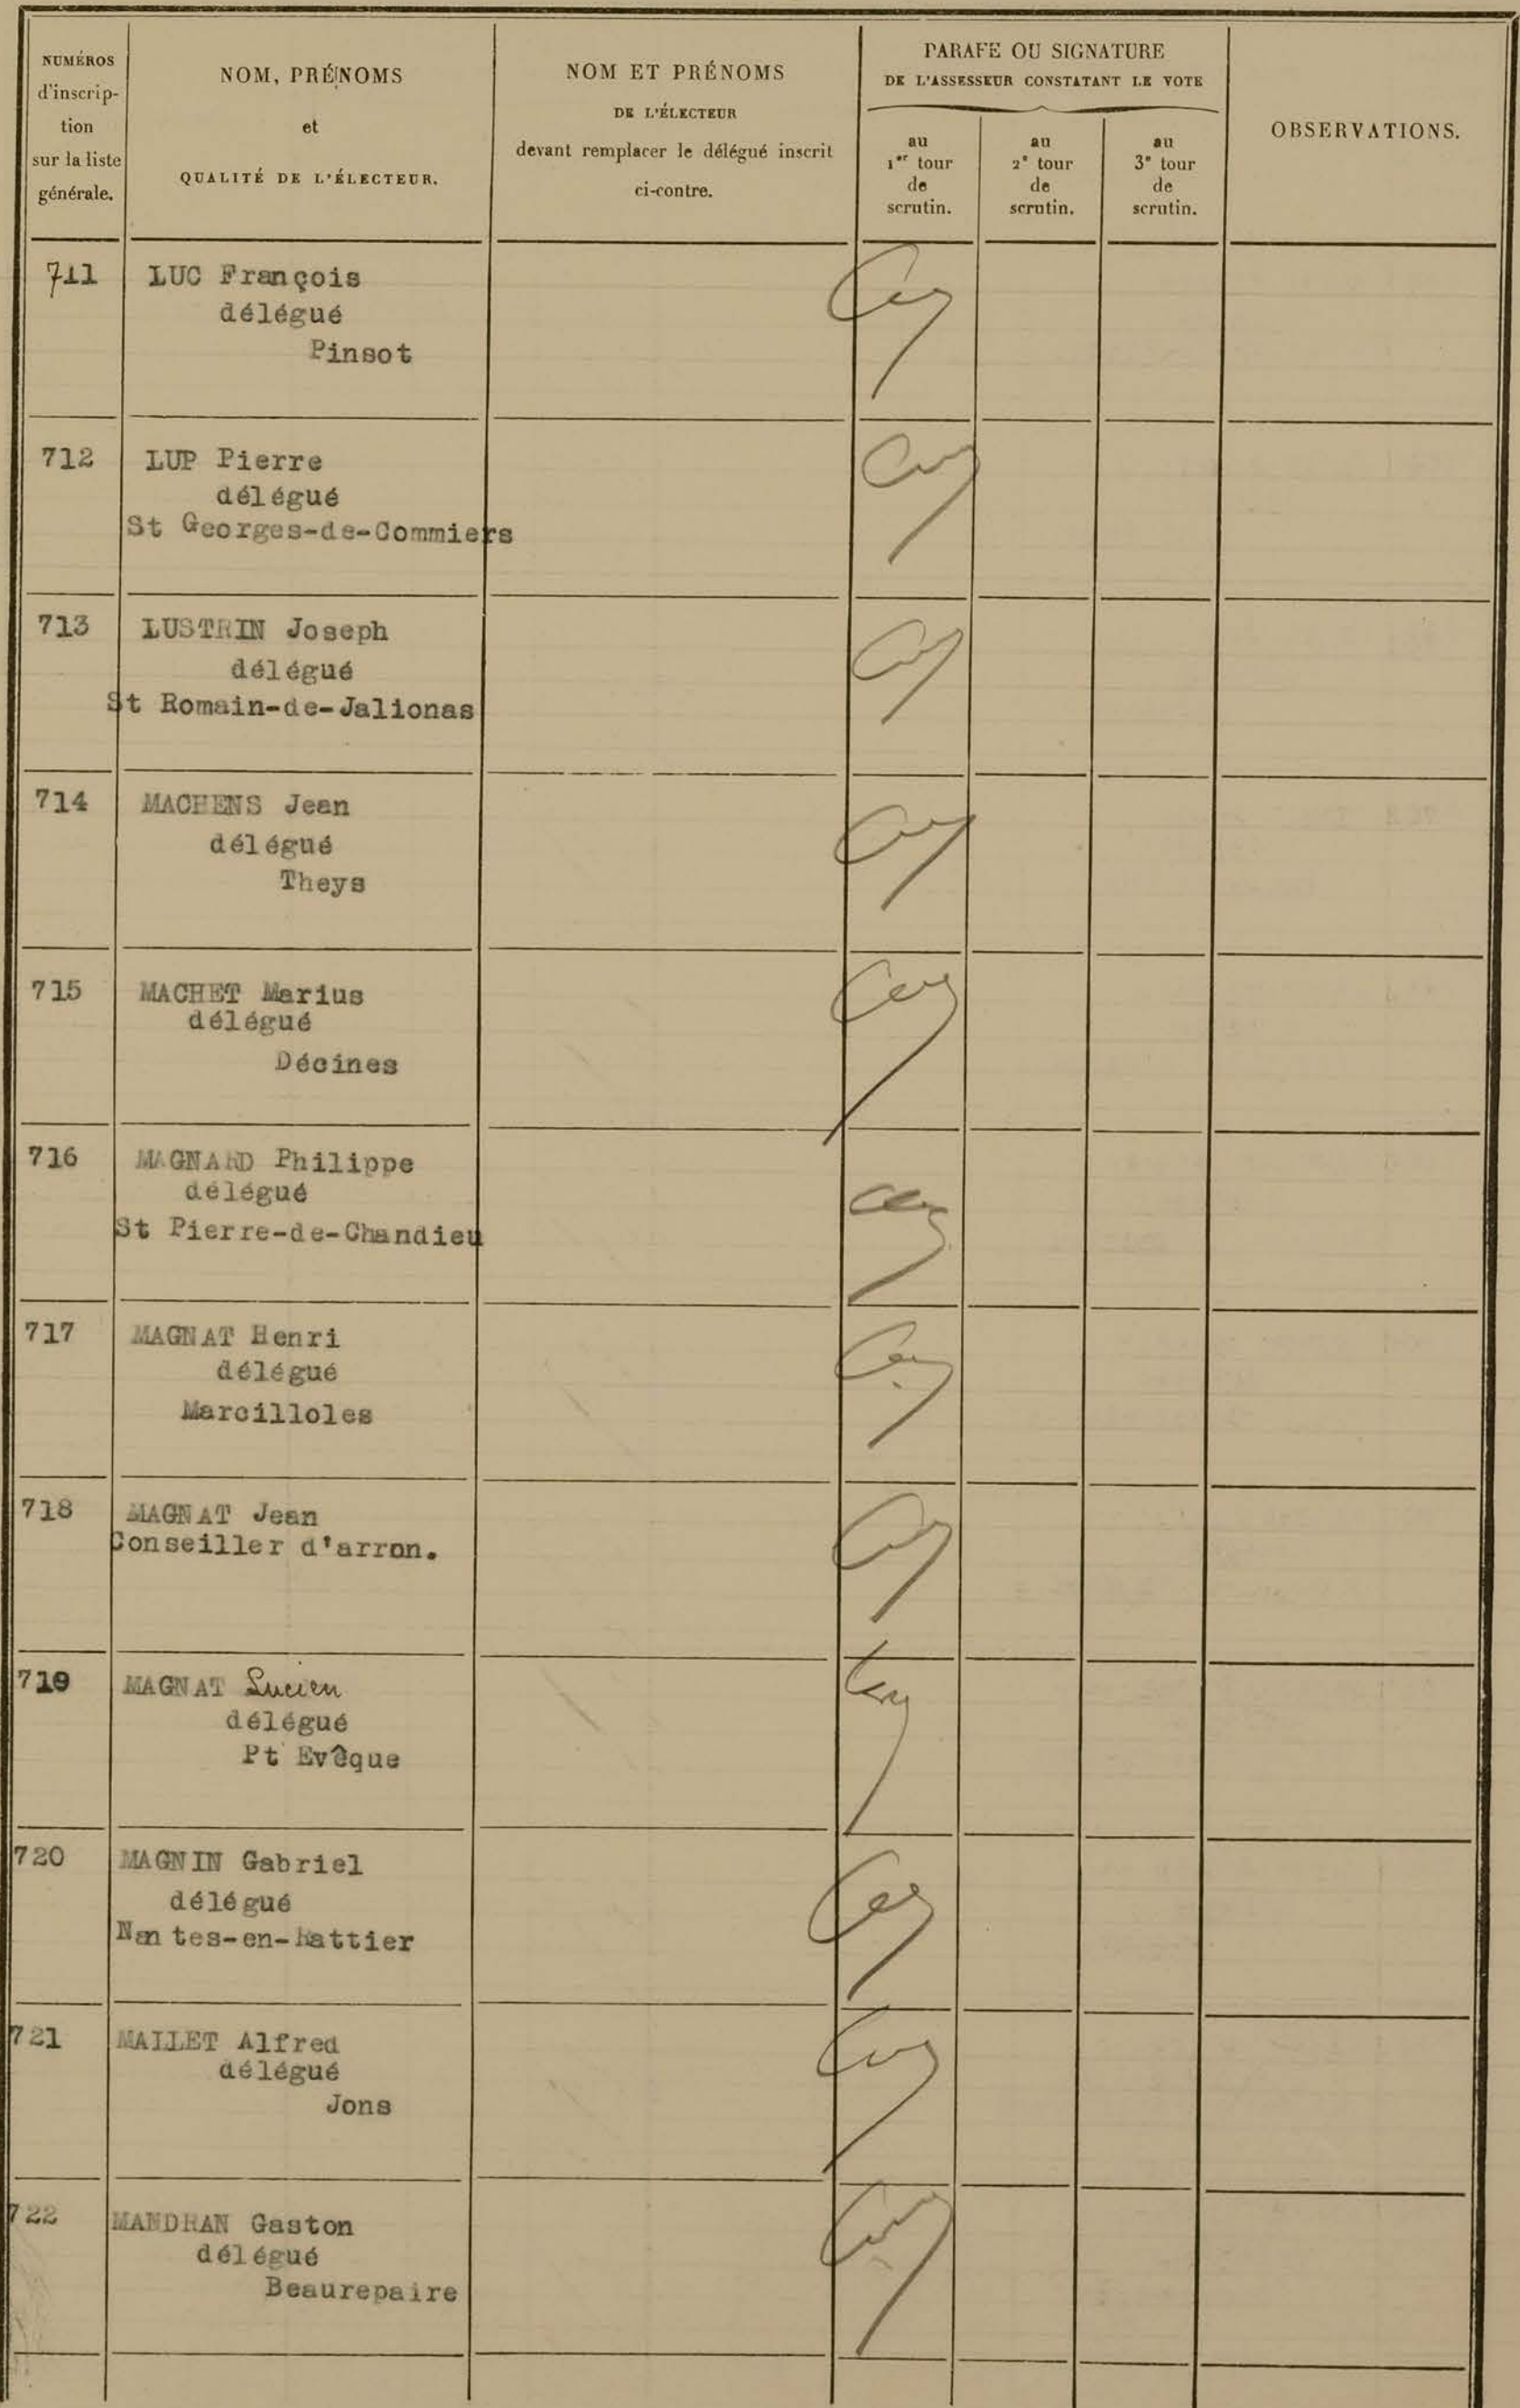 NUMÉROS
d'inscrip-
tion
sur la liste
générale.
NOM, PRÉNOMS
et
QUALITÉ DE L'ÉLECTEUR.
NOM ET PRÉNOMS
DE L'ÉLECTEUR
devant remplacer le délégué inscrit
ci-contre.
PARAFE OU SIGNATURE
DE L'ASSESSEUR CONSTATANT LE VOTE
au
1er tour
de
scrutin.
au
2e tour
de
scrutin.
au
3e tour
de
scrutin.
OBSERVATIONS.
711 LUC François
délégué
Pinsot
712 LUP Pierre
délégué
St Georges-de-Commiers
713 LUSTRIN Joseph
délégué
St Romain-de-Jalionas
714 MACHENS Jean
délégué
Theys
715 MACHET Marius
délégué
Décines
716 MAGNARD Philippe
délégué
St Pierre-de-Chandieu
717 MAGNAT Henri
délégué
Marcilloles
718 MAGNAT Jean
Conseiller d'arron.
719 MAGNAT Lucien
délégué
Pt Evêque
720 MAGNIN Gabriel
délégué
Nantes-en-Rattier
721 MAILLET Alfred
délégué
Jons
722 MANDRAN Gaston
délégué
Beaurepaire